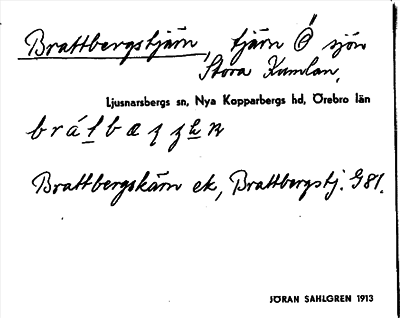 Brattbergstjärn, tjärn Ö sjön
Stora Kumlan,
Ljusnarsbergs sn, Nya Kopparbergs hd, Örebro län
Brattbergskärn ek, Brattbergstj. G 81.
JÖRAN SAHLGREN 1913